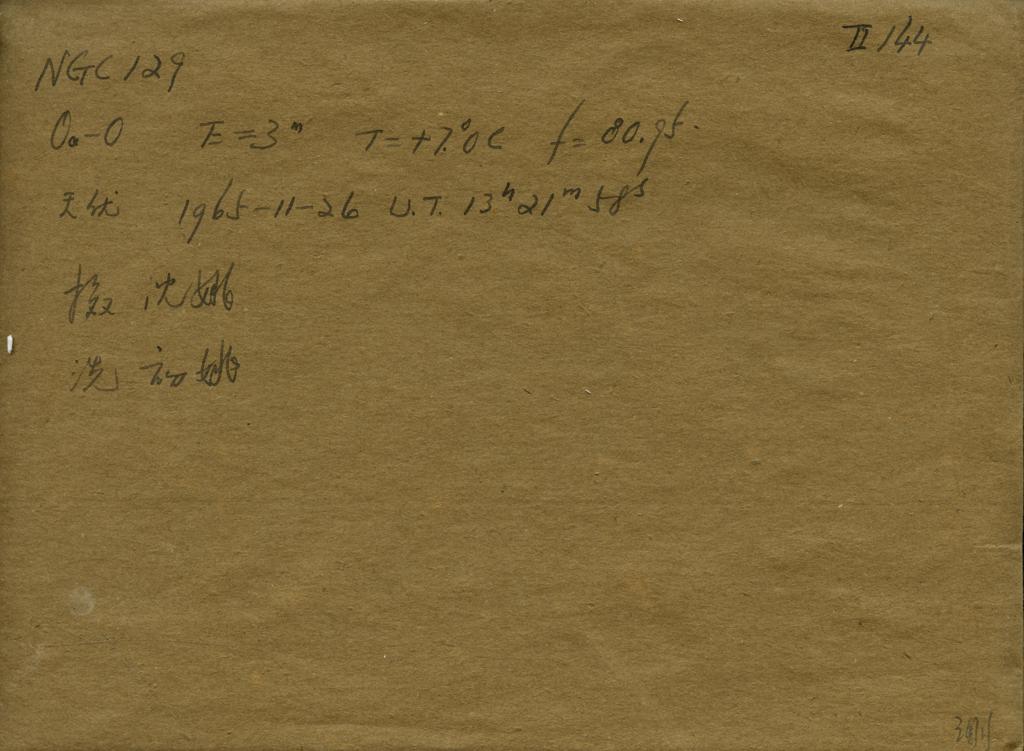 II 144
NGC 129
Oa-O E=3ᵐ T=+7.°0C f=80.95.
天优 1965-11-26 U.T. 13ʰ21ᵐ58ˢ
摄 沈姚
洗 初姚